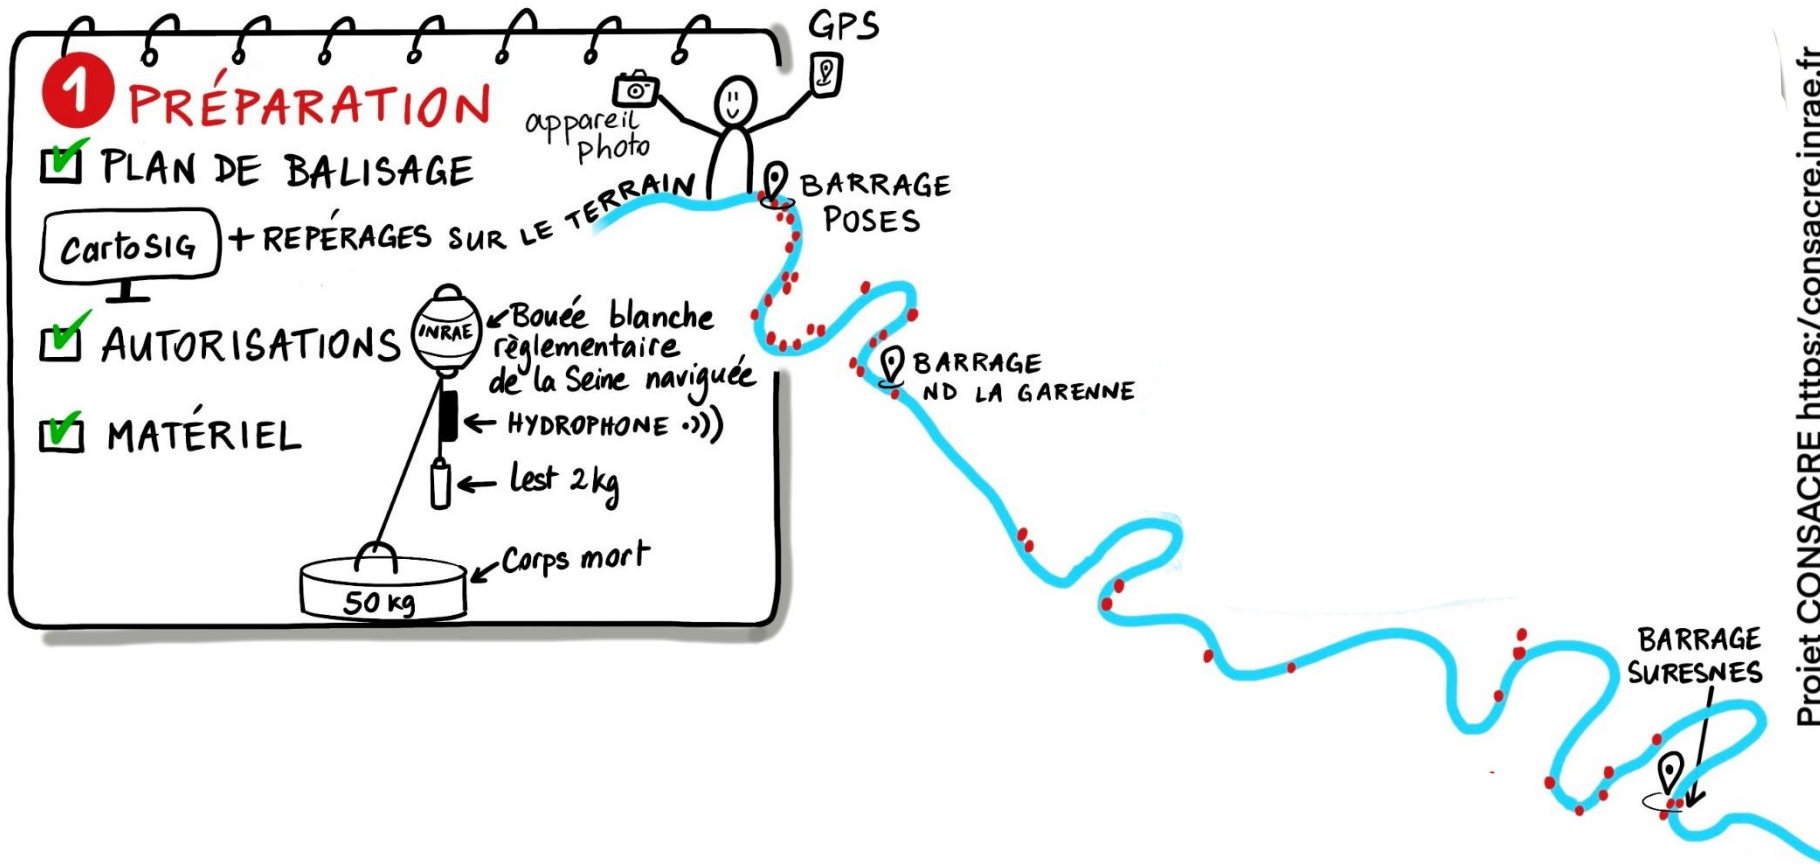 1 PRÉPARATION
PLAN DE BALISAGE
CartoSIG + REPÉRAGES SUR LE TERRAIN
AUTORISATIONS
MATÉRIEL
INRAE
Bouée blanche
règlementaire
de la Seine naviguée
HYDROPHONE
Lest 2kg
Corps mort
50 kg
appareil
photo
GPS
BARRAGE
POSES
BARRAGE
ND LA GARENNE
BARRAGE
SURESNES
Projet CONSACRE https:/consacre.inrae.fr